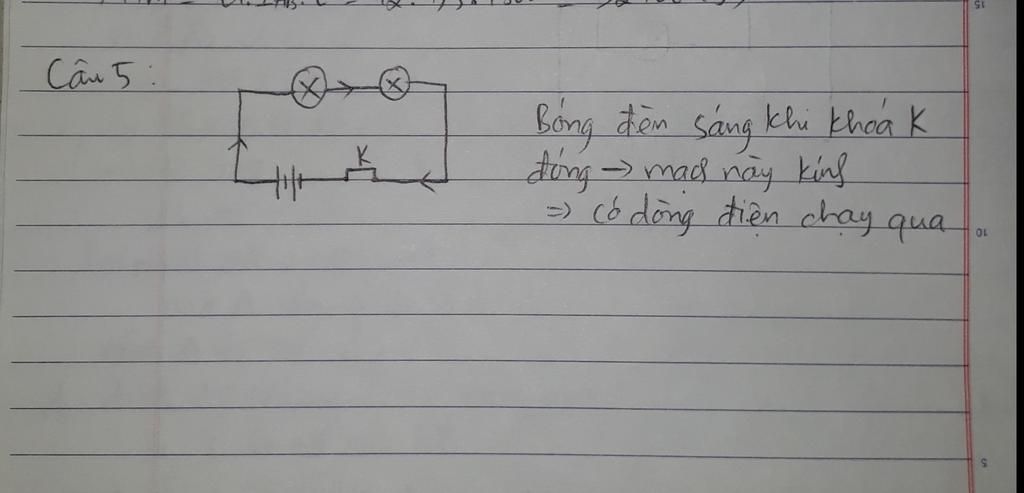 Câu 5 :
K
Bóng đèn sáng khi khoá K
đóng → mạch này kính
=> có dòng điện chạy qua
15
10
5